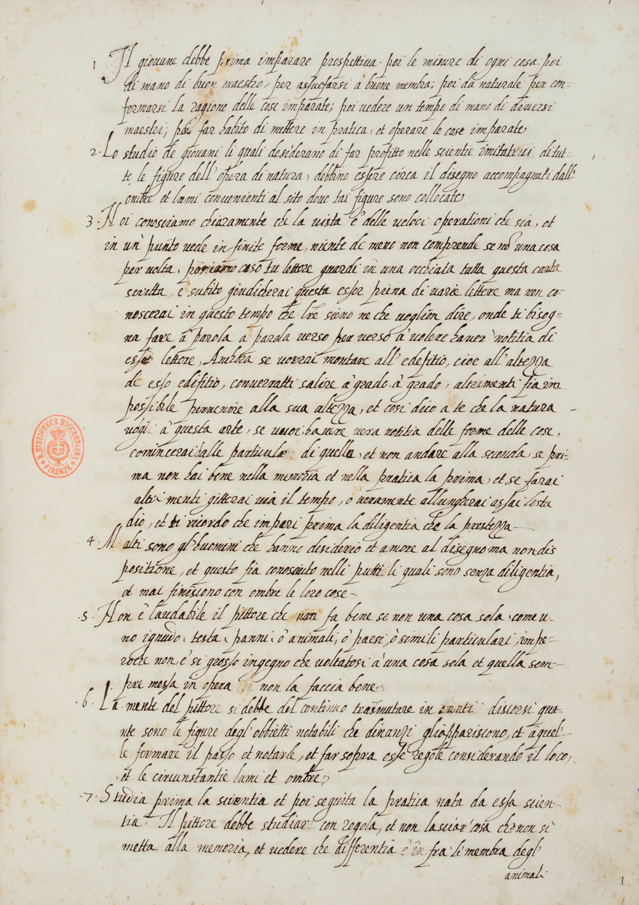 1 Il giovane debbe prima imparare prospettiva. poi le misure di ogni cosa: poi
di mano di buon maestro, per assuefarsi à buone membra; poi da naturale per con-
formarsi la ragione delle cose imparate; poi vedere un tempo di mano di diversi
maestri; poi far habito di mettere in pratica, et operare le cose imparate
2. Lo studio de giovani li quali desiderano di far profitto nelle scientie imitatrici di tut-
te le figure dell'opera di natura, debbino essere circa il disegno accompagnati dall'
ombre et lumi convenienti al sito dove tai figure sono collocate
3. Noi conosciamo chiaramente che la vista è delle veloci operationi che sia, et
in un punto vede infinite forme, niente di meno non comprende se no una cosa
per volta, poniamo caso tu lettore guardi in una occhiata tutta questa carta
scritta, e subito giudicherai questa esser piena di varie lettere ma non co-
noscerai in questo tempo che lre sieno ne che voglion dire, onde ti bisog-
na fare à parola à parola verso per verso à volere haver notitia di
esse lettere, Anchora se vorrai montare all'edefitio, cioe all'altezza
de esso edefitio, converratti salire à grado à grado, altrimenti fia im
possibile pervenire alla sua altezza, et cosi dico à te che la natura
vogl à questa arte, se vuoi havere vera notitia delle forme delle cose,
comincerai alle particular di quelle, et non andare alla seconda, se pri-
ma non hai bene nella memoria et nella pratica la prima, et se farai
altrimenti gitterai via il tempo, o veramente allungherai assai lo stu
dio, et ti ricordo che impari prima la diligentia che la prestezza
4. Molti sono gl'huomini che hanno desiderio et amore al disegno ma non dis
positione, et questo fia conosciuto nelli putti li quali sono senza diligentia,
et mai finiscono con ombre le loro cose
5. Non è laudabile il pittore che non fa bene se non una cosa sola, come u-
no ignudo, testa, panni, ò animali, ò paesi, ò simili particulari, impe-
roche non è si grosso ingegno che voltatosi à una cosa sola et quella sem-
pre messa in opera non la faccia bene
6. La mente del pittore si debbe del continuo trasmutare in tanti discorsi qua
nte sono le figure degl'obbietti notabili che dinanzi gli appariscono, et à quel
le formare il passo et notarle, et far sopra esse regole considerando il loco,
et le circunstantie lumi et ombre
7. Studia prima la scientia et poi seguita la pratica nata da essa scien-
tia. Il pittore debbe studiar con regola, et non lasciar cosa che non si
metta alla memoria, et vedere che differentia è in fra le membra degl'
animali
1
R. BIBLIOTECA RICCARDIANA
FIRENZE